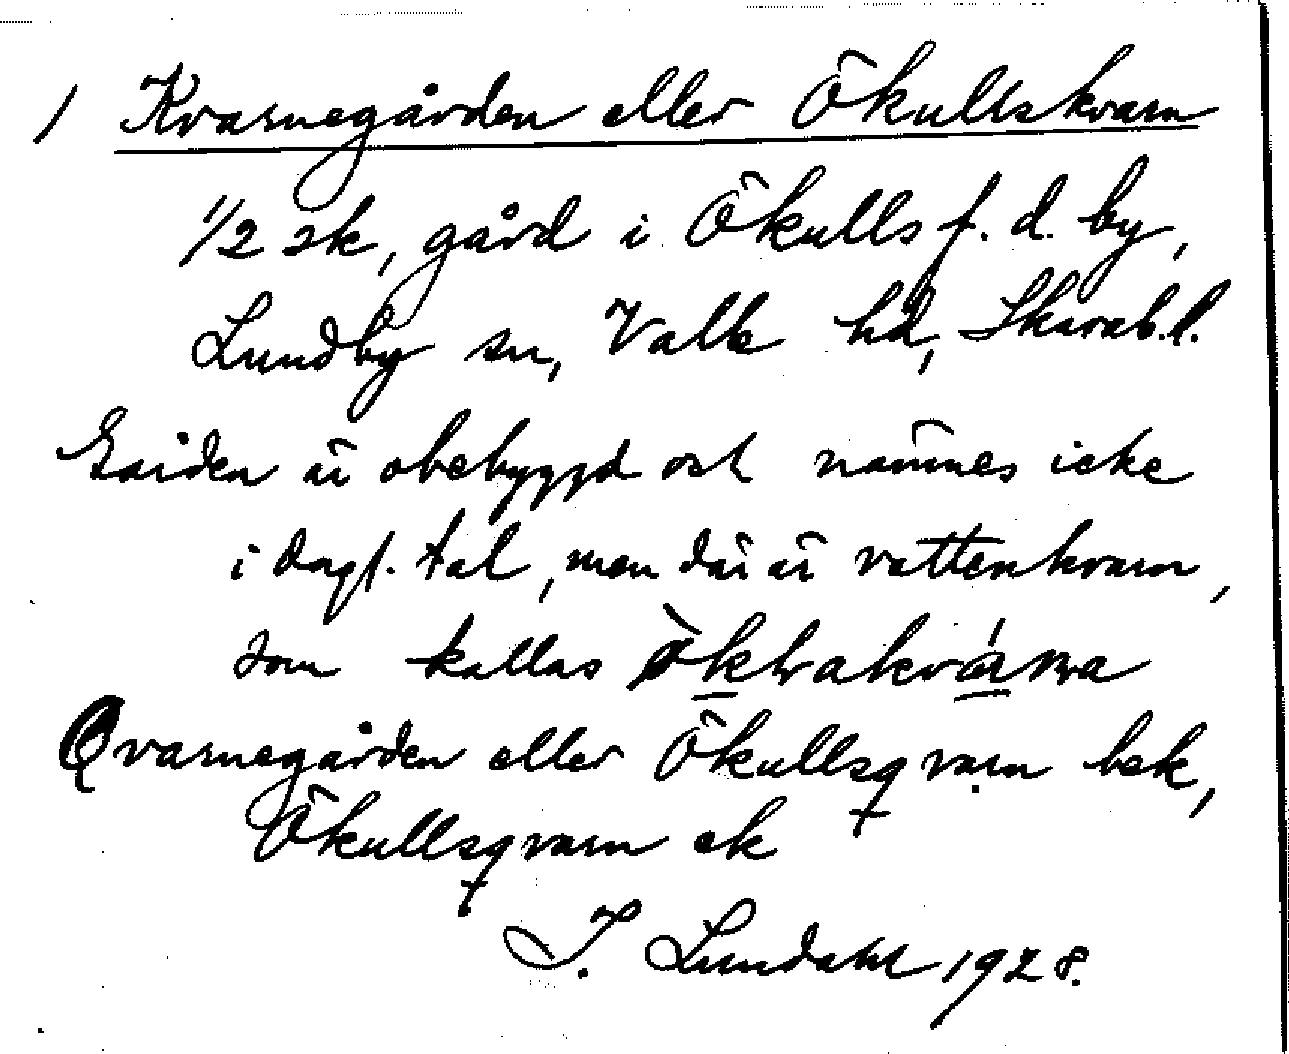 1 Kvarnegården eller Ökullskvarn
1/2 sk, gård i Ökulls f. d. by,
Lundby sn, Valle hd, Skarab. l.
Gården är obebyggd och nämnes icke
i dagl. tal, men där är vattenkvarn,
som kallas
Qvarnegården eller Ökullsqvarn bek,
Ökullsqvarn ek
I. Lundahl 1928.